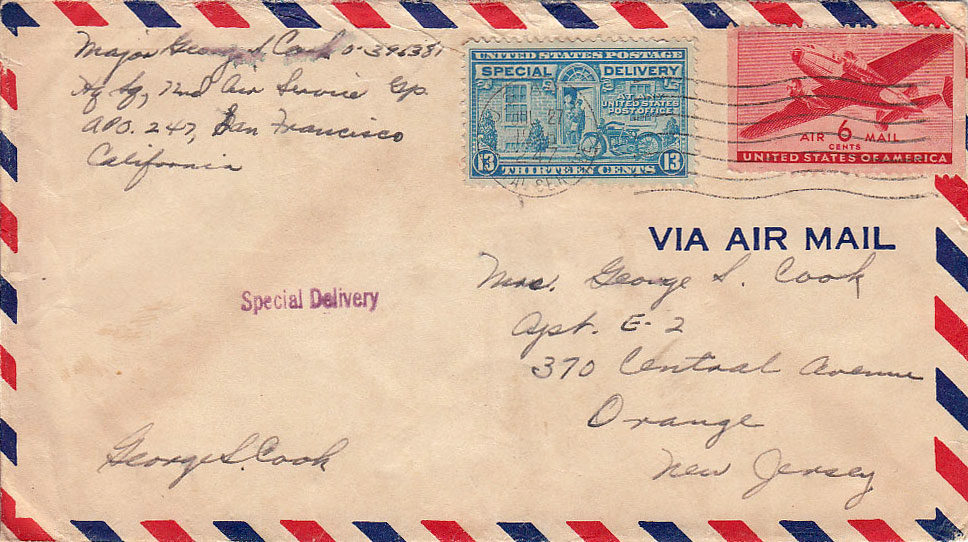 Major George S. Cook O-396381
Hq Sq, 72nd Air Service Gp.
APO. 247, San Francisco
California
UNITED STATES POSTAGE
SPECIAL DELIVERY
AT ANY
UNITED STATES
POST OFFICE
13 13
THIRTEEN CENTS
AIR 6 MAIL
CENTS
UNITED STATES OF AMERICA
VIA AIR MAIL
Special Delivery
Mrs. George S. Cook
Apt. E-2
370 Central Avenue
Orange
New Jersey
George S. Cook